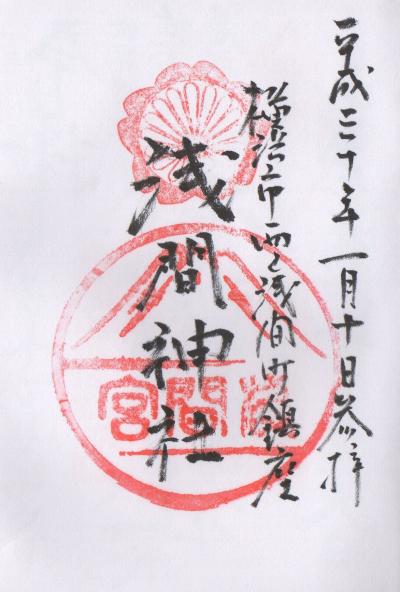 平成三十年一月十日参拝
横浜市西区浅間町鎮座
浅間神社
浅間宮